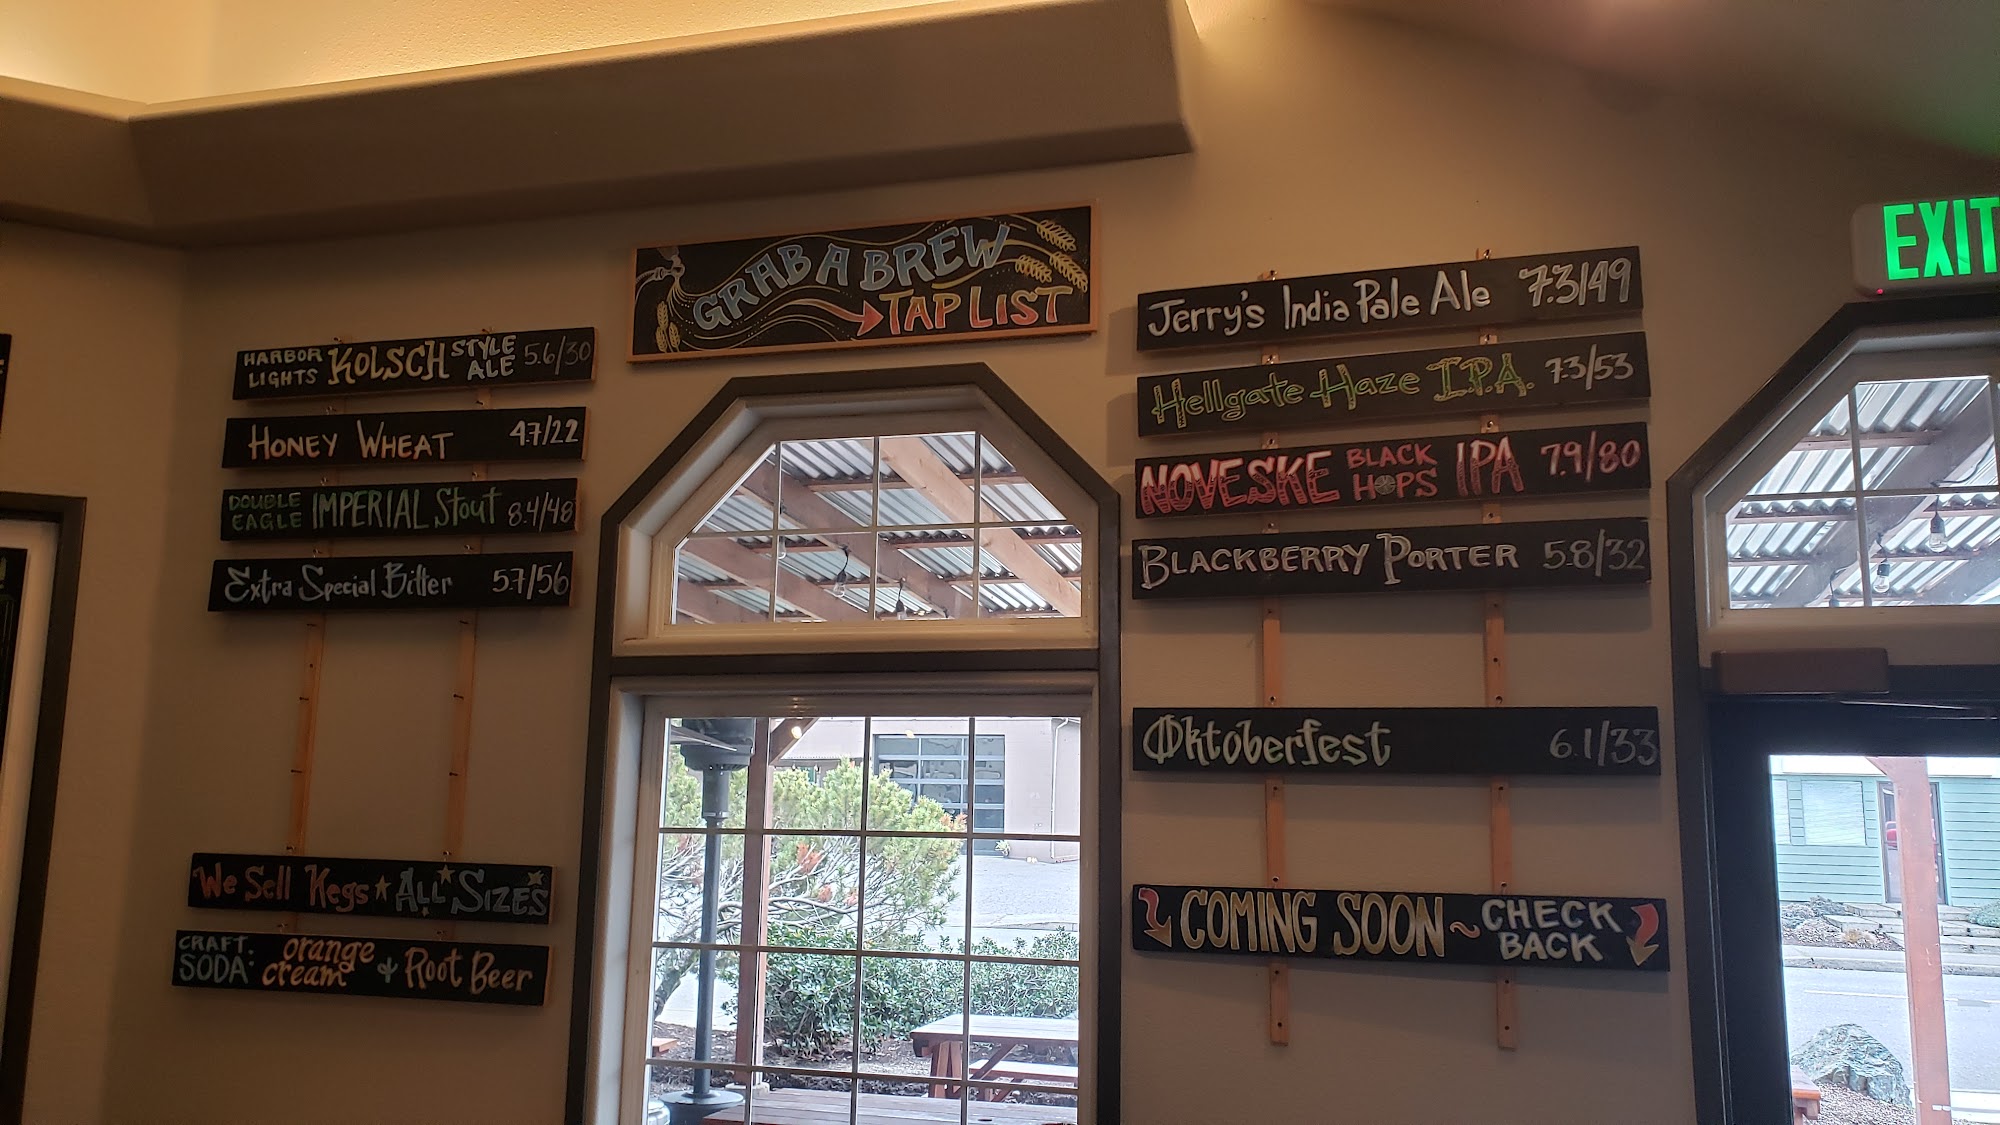 GRAB A BREW
TAP LIST
HARBOR LIGHTS KOLSCH STYLE ALE 5.6/30
HONEY WHEAT 4.7/22
DOUBLE EAGLE IMPERIAL Stout 8.4/48
Extra Special Bitter 5.7/56
We Sell Kegs ALL SIZES
CRAFT SODA: orange cream & Root Beer
Jerry's India Pale Ale 7.3/49
Hellgate Haze I.P.A. 7.3/53
NOVESKE BLACK HOPS IPA 7.9/80
BLACKBERRY PORTER 5.8/32
Oktoberfest 6.1/33
COMING SOON ~ CHECK BACK
EXIT